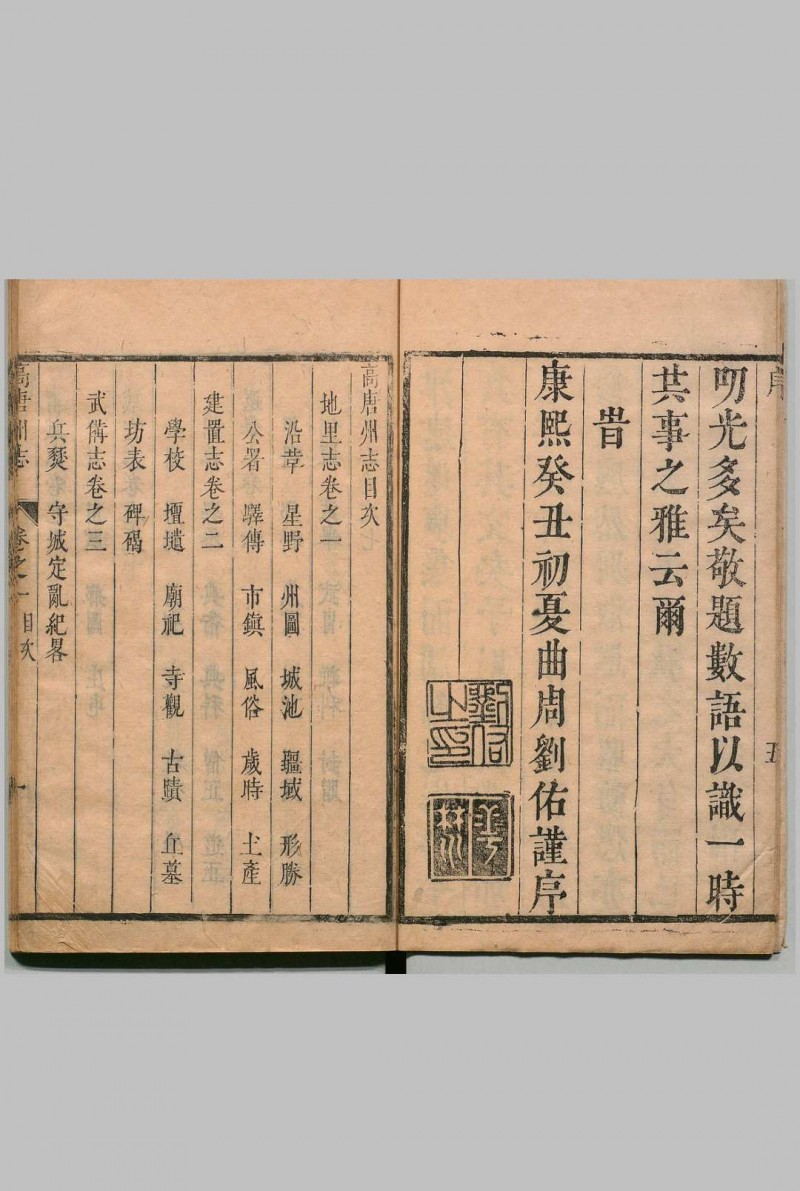 序
五
叨光多矣敬題數語以識一時
共事之雅云爾
旹
康熙癸丑初夏曲周劉佑謹序
劉佑之印
高唐州志目次
地里志卷之一
沿革 星野 州圖 城池 疆域 形勝
公署 驛傳 市鎮 風俗 歲時 土產
建置志卷之二
學校 壇壝 廟祀 寺觀 古蹟 丘墓
坊表 碑碣
武備志卷之三
兵燹 守城定亂紀畧
高唐州志 卷之一 目次 一